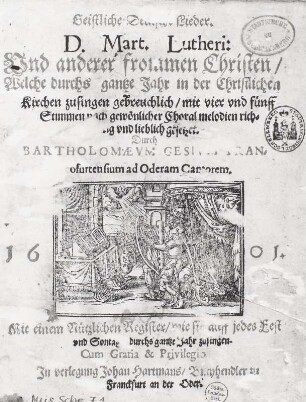 Geistliche Deutsche Lieder.
D. Mart. Lutheri:
Und anderer frommen Christen/
Welche durchs gantze Jahr in der Christlichen
Kirchen zusingen gebreuchlich/ mit vier vnd fünff
Stimmen nach gewönlicher Choral melodien rich-
tig vnd lieblich gesetzet.
Durch
BARTHOLOMÆVM GESIVM FRAN-
cofurtensium ad Oderam Cantorem.
16 01.
Mit einem Nützlichen Register/ wie sie auff jedes Fest
vnd Sontag durchs gantze Jahr zusingen.
Cum Gratia & Privilegio
In verlegung Johan Hartmans/ Buchhendler in
Franckfurt an der Oder.